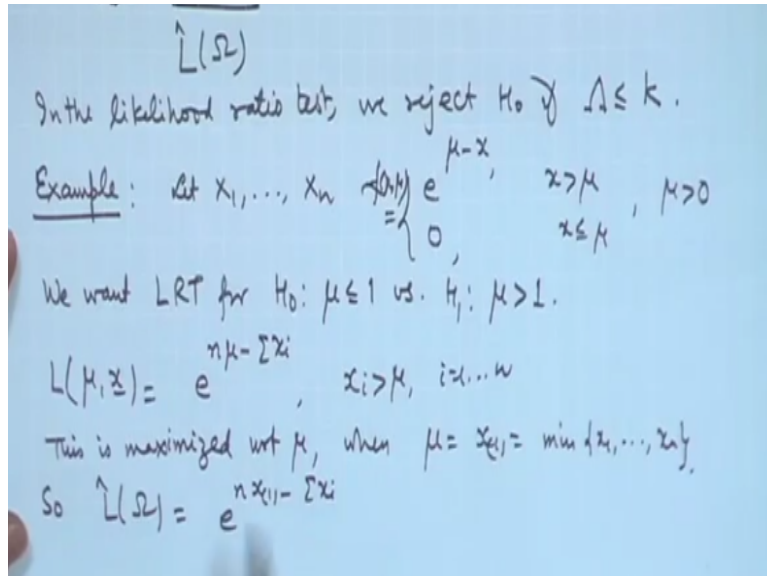 L̂(Ω)
In the likelihood ratio test, we reject H₀ if Λ ≤ k.
Example: Let X₁, ..., Xₙ ~ f(x,μ) = { e^{μ-x}, x>μ, μ>0
0, x≤μ
We want LRT for H₀: μ≤1 vs. H₁: μ>1.
L(μ,x) = e^{nμ-Σxi}, xi>μ, i=1...n
This is maximized wrt μ, when μ = x₍₁₎ = min{x₁,...,xₙ}.
So L̂(Ω) = e^{nx₍₁₎-Σxi}